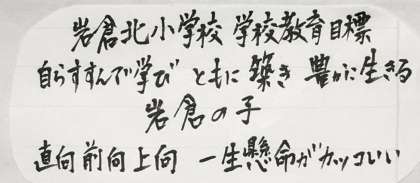 岩倉北小学校 学校教育目標
自らすすんで学び ともに築き 豊かに生きる
岩倉の子
直向前向上向 一生懸命がカッコいい